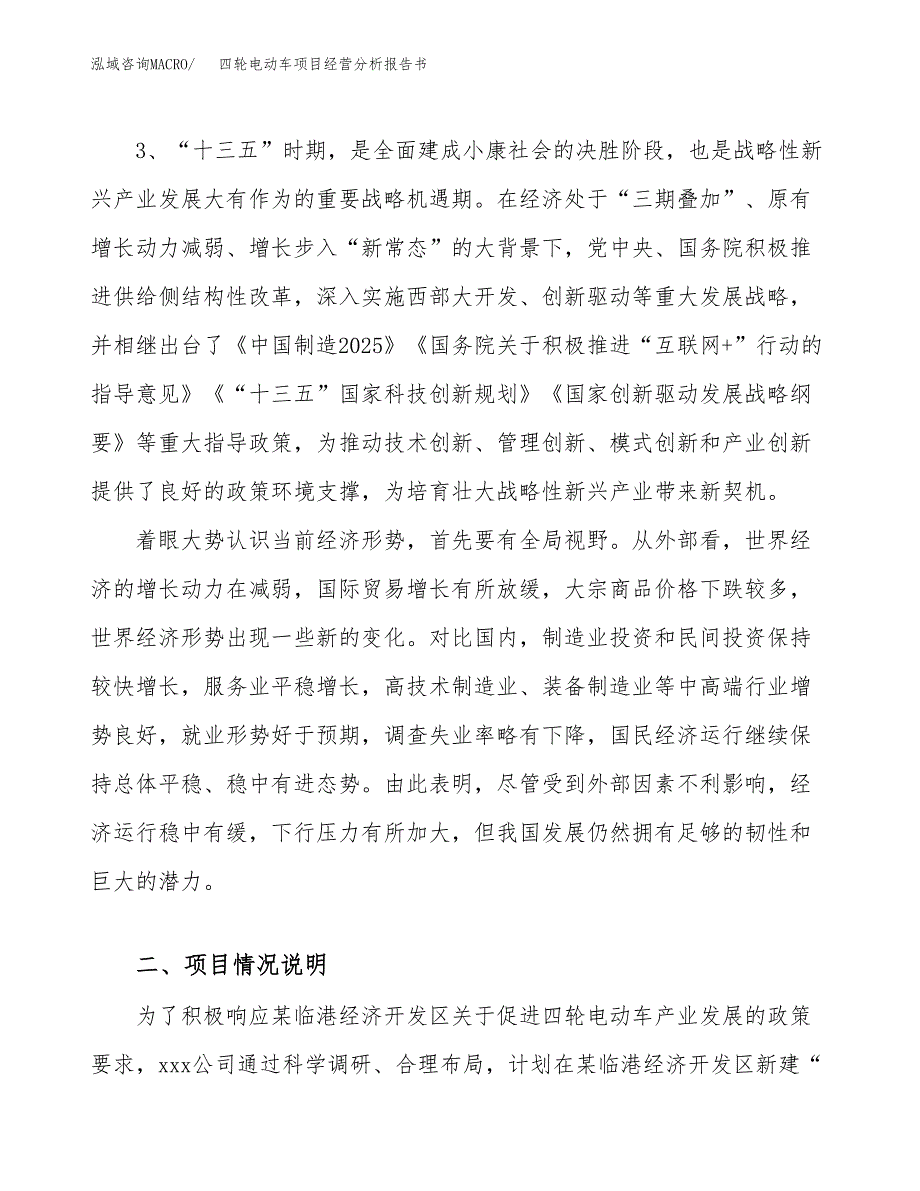 泓域咨询MACRO/ 四轮电动车项目经营分析报告书
3、“十三五”时期，是全面建成小康社会的决胜阶段，也是战略性新
兴产业发展大有作为的重要战略机遇期。在经济处于“三期叠加”、原有
增长动力减弱、增长步入“新常态”的大背景下，党中央、国务院积极推
进供给侧结构性改革，深入实施西部大开发、创新驱动等重大发展战略，
并相继出台了《中国制造2025》《国务院关于积极推进“互联网+”行动的
指导意见》《“十三五”国家科技创新规划》《国家创新驱动发展战略纲
要》等重大指导政策，为推动技术创新、管理创新、模式创新和产业创新
提供了良好的政策环境支撑，为培育壮大战略性新兴产业带来新契机。
着眼大势认识当前经济形势，首先要有全局视野。从外部看，世界经
济的增长动力在减弱，国际贸易增长有所放缓，大宗商品价格下跌较多，
世界经济形势出现一些新的变化。对比国内，制造业投资和民间投资保持
较快增长，服务业平稳增长，高技术制造业、装备制造业等中高端行业增
势良好，就业形势好于预期，调查失业率略有下降，国民经济运行继续保
持总体平稳、稳中有进态势。由此表明，尽管受到外部因素不利影响，经
济运行稳中有缓，下行压力有所加大，但我国发展仍然拥有足够的韧性和
巨大的潜力。
二、项目情况说明
为了积极响应某临港经济开发区关于促进四轮电动车产业发展的政策
要求，xxx公司通过科学调研、合理布局，计划在某临港经济开发区新建“